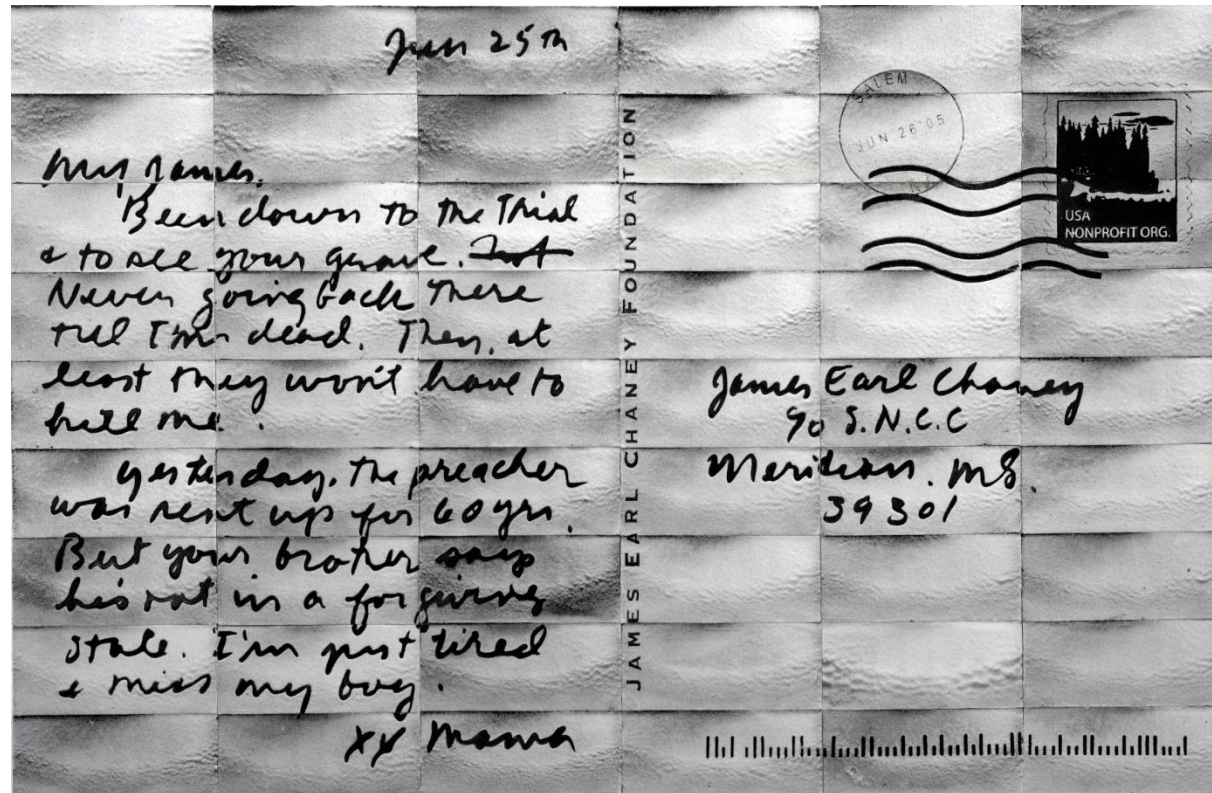 Jun 25th
My James,
Been down to the Trial
& to see your grave.
Never going back there
till I'm dead. Then, at
least they won't have to
kill me.
Yesterday, the preacher
was sent up for 60 yrs.
But your brother says
he's not in a forgiving
state. I'm just tired
& miss my boy.
XX Mama
JAMES EARL CHANEY FOUNDATION
SALEM
JUN 26 '05
NJ
USA
NONPROFIT ORG.
James Earl Chaney
c/o S.N.C.C
Meridian, MS.
39301